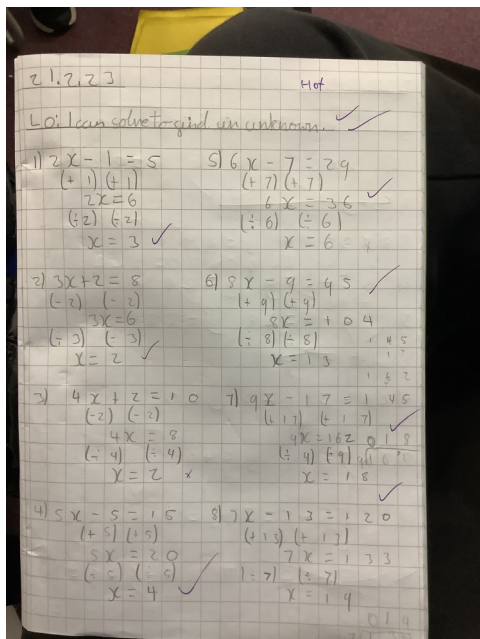 21.2.23
Hot
LO: I can solve to find an unknown.
1) 2x - 1 = 5
(+ 1) (+ 1)
2x = 6
(÷2) (÷2)
x = 3
2) 3x + 2 = 8
(- 2) (- 2)
3x = 6
(÷ 3) (÷ 3)
x = 2
3) 4x + 2 = 10
(-2) (-2)
4x = 8
(÷ 4) (÷ 4)
x = 2
4) 5x - 5 = 15
(+ 5) (+ 5)
5x = 20
(÷ 5) (÷ 5)
x = 4
5) 6x - 7 = 29
(+ 7) (+ 7)
6x = 36
(÷ 6) (÷ 6)
x = 6
6) 8x - 9 = 95
(+ 9) (+ 9)
8x = 104
(÷ 8) (÷ 8)
x = 13
1 4 5
1 7
1 6 2
7) 9x - 17 = 145
(+ 17) (+ 17)
9x = 162
0 1 8
(÷ 9) (÷ 9)
x = 18
8) 7x - 13 = 120
(+ 13) (+ 13)
7x = 133
(÷ 7) (÷ 7)
x = 19
0 1 9